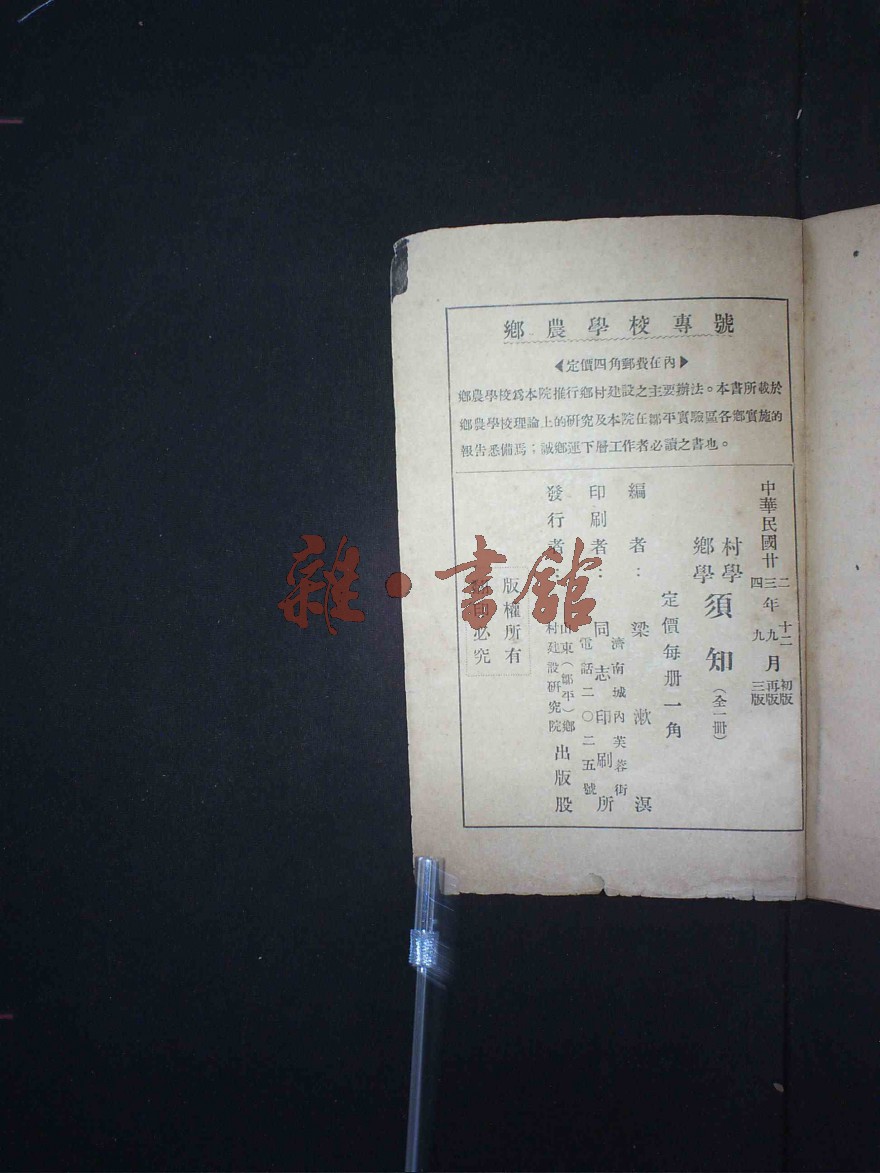 鄉農學校專號
◀定價四角郵費在內▶
鄉農學校爲本院推行鄉村建設之主要辦法。本書所載於
鄉農學校理論上的研究及本院在鄒平實驗區各鄉實施的
報告悉備焉；誠鄉運下層工作者必讀之書也。
中華民國廿
二
三
四
年
十二
九
九
月
初版
再版
三版
村學
鄉學
須知
(全一冊)
定價每册一角
編者：梁漱溟
濟南城內芙蓉街
印刷者：同志印刷所
電話二〇二五號
發行者：
山東(鄒平)鄉
村建設研究院
出版股
版權所有
必究
雜·書館